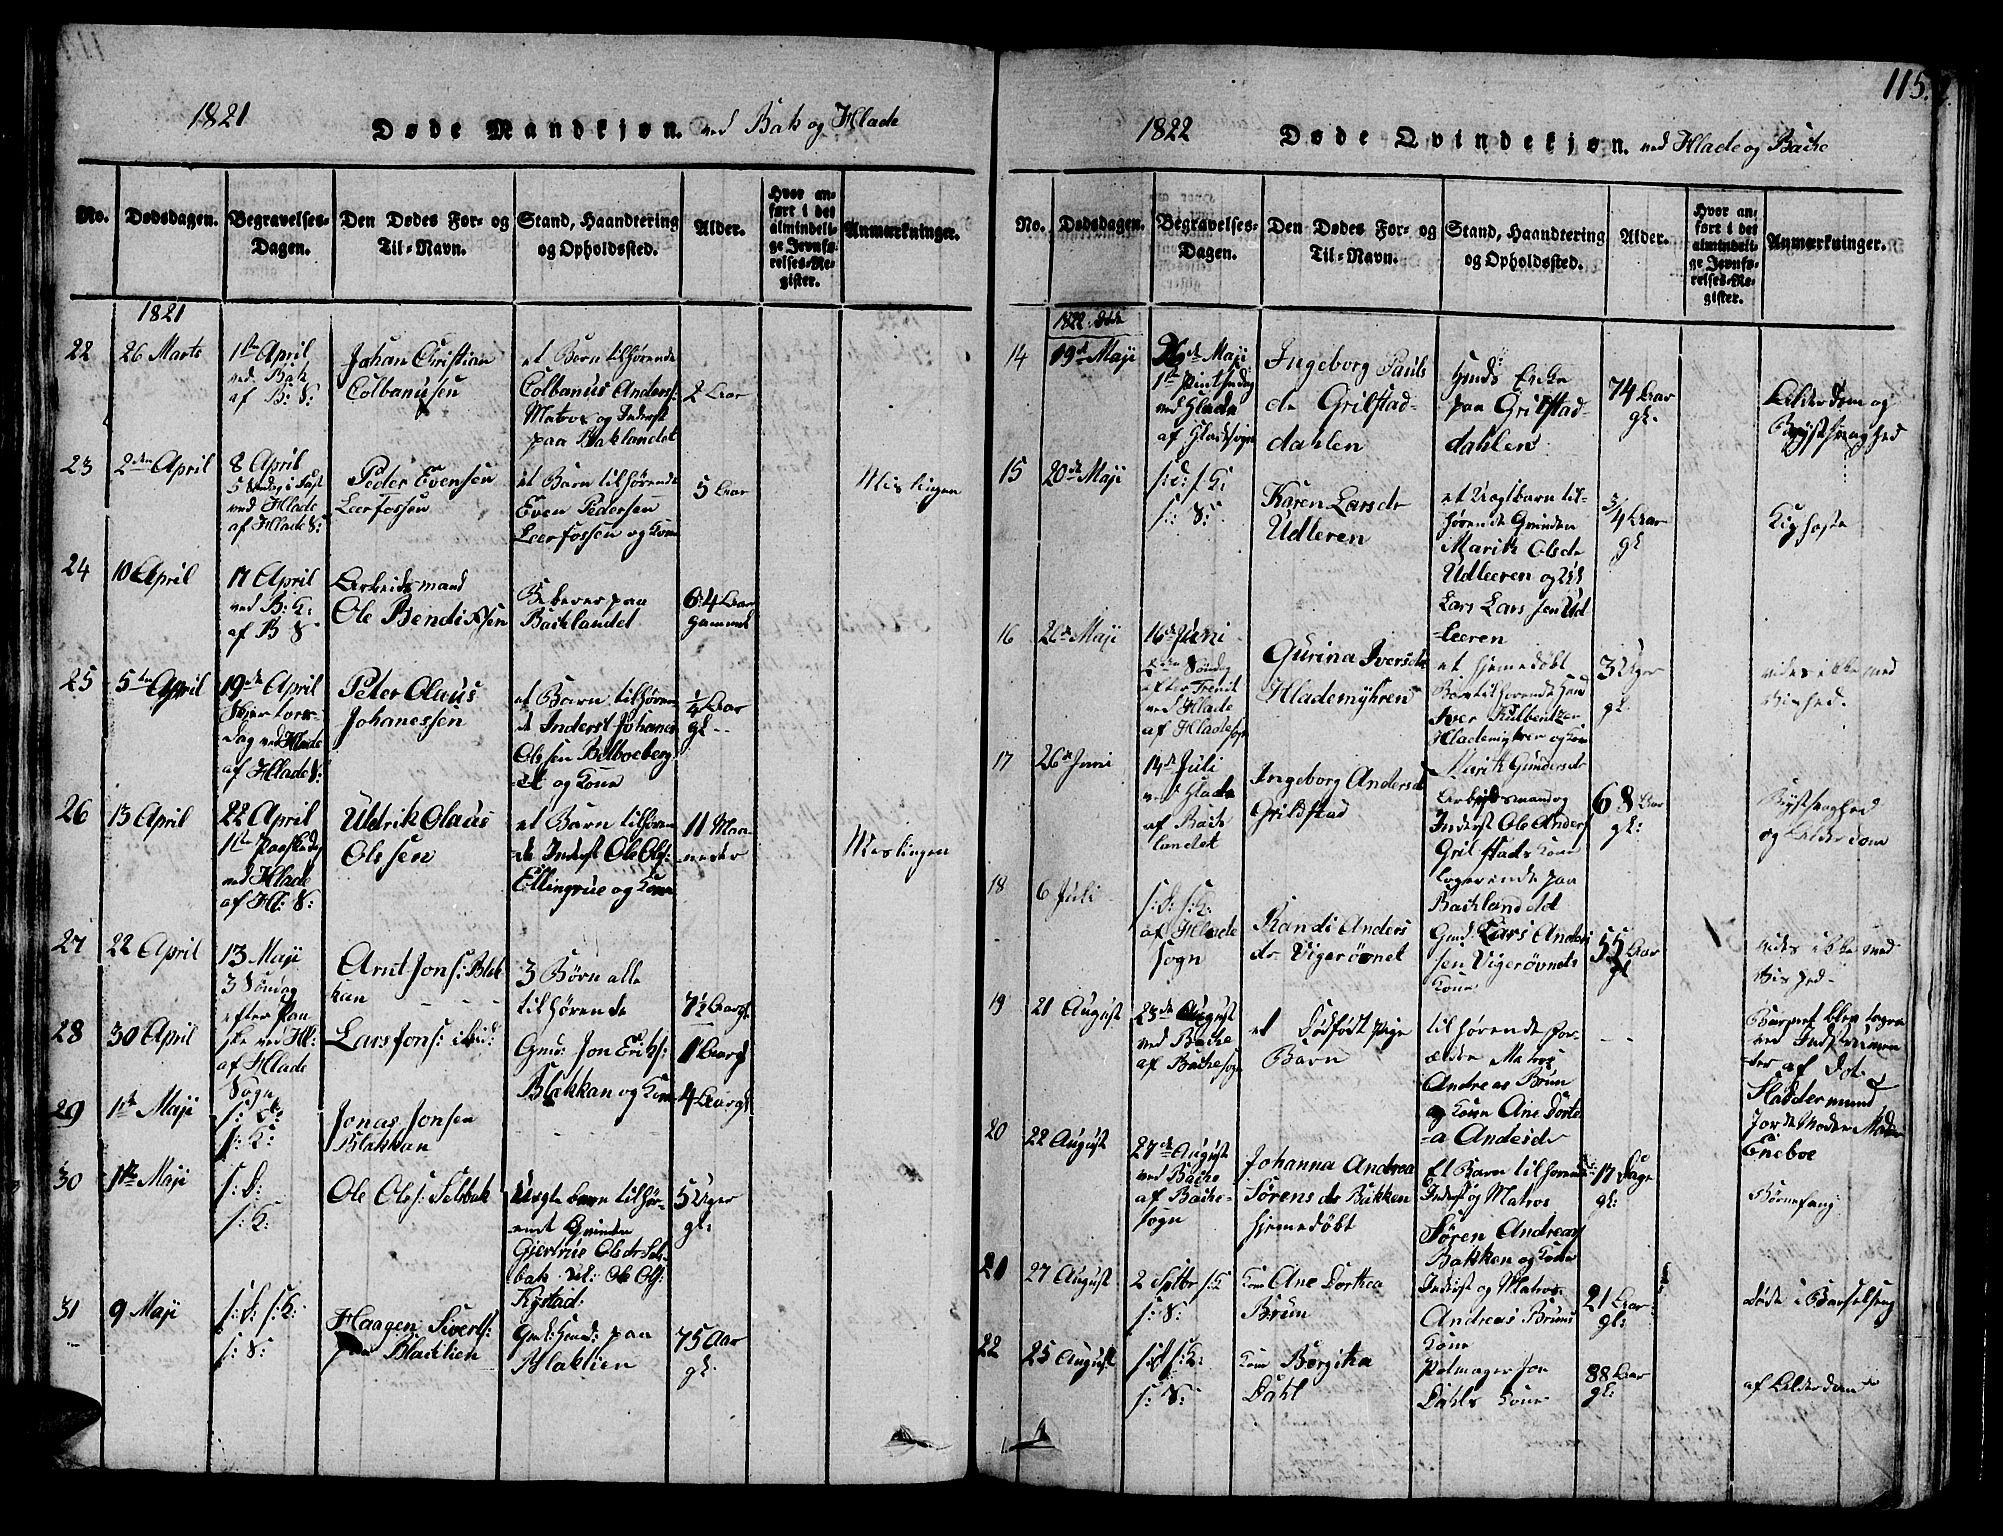 1821
Døde Mandkjøn. ved Bak og Hlade
No.
Dødsdagen.
Begravelses-
Dagen.
Den Dødes For- og
Til-Navn.
Stand, Haandtering
og Opholdssted.
Alder.
Hvor an-
ført i det
almindeli-
ge Jevnfø-
relses-Re-
gister.
Anmærkninger.
1821
22
26 Marts
1ste April
ved Bak
af B: S:
Johan Christian
Colbanussen
et Barn tilhørende
Colbanus Anders:
Matros og Inderst
paa Baklandet
2 Aar
23
2den April
8 April
5 Søndag i Fast
ved Hlade
af Hlade S:
Peder Evensen
Leerfossen
et Barn tilhørende
Even Pedersen
Leerfossen og Kone
5 Aar
Meslingen
24
10 April
17 April
ved B: K:
af B S
Arbeidsmand
Ole Bendixsen
Beboer paa
Backlandet
64 Aar
gammel
25
5te April
19de April
Skjertors-
dag ved Hlade
af Hlade S:
Peter Olaus
Johanessen
et Barn tilhøren-
de Inderst Johanes
Olssen Belboeberg-
et og Kone
1/4 Aar
gl.
26
13 April
22 April
1ste Paaskedag
ved Hlade
af Hl: S:
Uldrik Olaus
Olssen
et Barn tilhøren-
de Inderst Ole Ols:
Ellingrue og Kone
11 Maa-
neder
Meslingen
27
22 April
13 Maji
3 Søndag
efter Paa-
ske ved Hl:
af Hlade
Sogn
Arnt Jons: Blak-
kan
3 Børn alle
tilhørende
7 1/2 Aar gl
28
30 April
Lars Jons: ibid:
Gmd: Jon Eriks:
Blakkan og Kone
11 Aar gl
29
1ste Maji
s: D:
s: K:
Jonas Jonsen
Blakkan
4 Aar gl
30
1ste Maji
s: D:
s: K:
Ole Ols: Selsbak
Uægte barn tilhør-
ende Qvinden
Gjertrue Olsdr Sels-
bak og: Ole Ols:
Rystad:
5 Uger
gl:
31
9 Maji
s: D: s: K:
s: S:
Haagen Siverts:
paa Blacklien
Gml: Hmd: paa
Blaklien
75 Aar
gl:
115.
1822
Døde Qvindekjøn. ved Hlade og Bache
No.
Dødsdagen.
Begravelses-
Dagen.
Den Dødes For- og
Til-Navn.
Stand, Haandtering
og Opholdssted.
Alder.
Hvor an-
ført i det
almindeli-
ge Jevnfø-
relses-Re-
gister.
Anmærkninger.
1822 Døde
14
19de Maji
26de Maji
1ste Pintsedag
ved Hlade
af Hladesogn
Ingeborg Pauls-
dr Grilstad-
dahlen
Hmds Enke
paa Grilstad-
dahlen
74 Aar
gl.
Alderdom og
Brystsvaghed
15
20de Maji
s: d: s: K:
s: S:
Karen Larsdr
Udleren
et Uægtbarn til-
hørende Qvinden
Marith Olsdr
Udleeren og
Lars Larssen Ud-
leeren
3/4 Aar
gl
Kighoste
16
26de Maji
16de Juni
Søndag
efter Trenit
ved Hlade
af Hladesogn
Gurina Iversdr
Hlademyhren
et hjemedøbt
Barn tilhørende Hmd
Iver Kulbentzen
Hlademyhren og Kone
Marith Gundersdr
3 Uger
gl:
vides ikke med
Vished.
17
26de Juni
14de Juli
ved Hlade
af Back-
landet
Ingeborg Andersdr
Grildstad
Arbeidsmand og
Inderst Ole Anders
Grilstads Kone
logerende paa
Backlandet
68 Aar
gl:
Brystsvaghed
og Alderdom
18
6 Juli
s: D: s: K:
af Hlade
Sogn
Randi Anders
dr Vigerøvnet
Gmd Lars Ander-
sen Vigerøvnets
Kone
55 Aar
gl
vides ikke med
Vished
19
21 August
25de August
ved Bache
af Bachesogn
et Dødfødt pige
Barn
tilhørende For-
ældre Matros
Andreas Brun
og Kone Ane Dorte-
a Andersdr
Barnet blev tagen
ved Instrumen-
ter af Dot
Fladdermund
Jordemoder Mad:
Eneboe
20
22 August
27de August
ved Bache
af Bache-
sogn
Johanna Andrea
Sørensdr Bakken
hjemedøbt
Et Barn tilhørende
Inderst og Matros
Søren Andreas
Bakken og Kone
17 Dage
gl:
Børnefang
21
27 August
2 Septbr s: K
s: S:
Kone Ane Dorthea
Brun
Inderst og Matros
Andreas Bruns
Kone
21 Aar
gl:
døde i Barselseng
22
25 August
s: d s: K:
s: S:
Kone Bergitha
Dahl
Pælmager Jon
Dahls Kone
88 Aar
gl:
af Alderdom